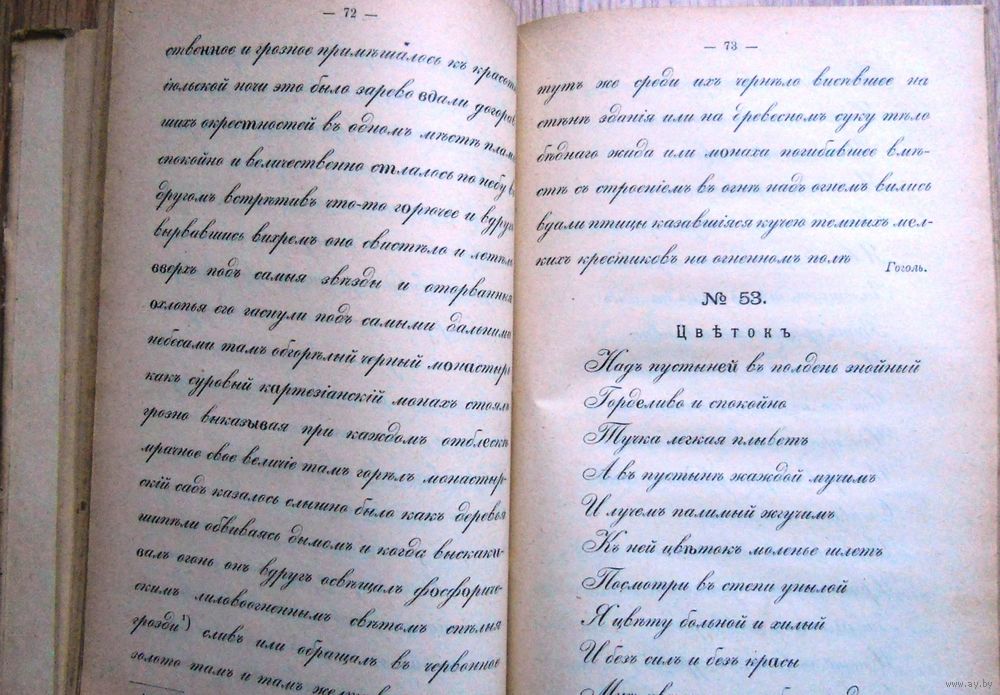 — 72 —
ственное и грозное примѣшалось къ красотѣ
іюльской ночи это было зарево вдали догорав
шихъ окрестностей въ одномъ мѣстѣ пламя
спокойно и величественно стлалось по небу въ
другомъ встрѣтивъ что-то горючее и вдругъ
вырвавшись вихремъ оно свистѣло и летѣло
вверхъ подъ самыя звѣзды и оторванныя
охлопья его гаснули подъ самыми дальними
небесами тамъ обгорѣлый черный монастырь
какъ суровый картезіанскій монахъ стоялъ
грозно выказывая при каждомъ отблескѣ
мрачное свое величіе тамъ горѣлъ монастыр-
скій садъ казалось слышно было какъ деревья
шипѣли обвиваясь дымомъ и когда выскаки-
валъ огонь онъ вдругъ освѣщалъ фосфориче-
скимъ лиловоогненнымъ свѣтомъ спѣлыя
грозди¹) сливъ или обращалъ въ червонное
золото тамъ и тамъ
— 73 —
тутъ же среди ихъ чернѣло висѣвшее на
стѣнѣ зданія или на древесномъ суку тѣло
бѣднаго жида или монаха погибавшее вмѣ-
стѣ съ строеніемъ въ огнѣ надъ огнемъ вились
вдали птицы казавшіяся кучею темныхъ мел-
кихъ крестиковъ на огненномъ полѣ
Гоголь.
№ 53.
Цвѣтокъ
Надъ пустыней въ полдень знойний
Горделиво и спокойно
Тучка легкая плыветъ
А въ пустынѣ жаждой мучимъ
И лучемъ палимый жгучимъ
Къ ней цвѣтокъ моленье шлетъ
Посмотри въ степи унылой
Я цвѣту больной и хилый
И безъ силъ и безъ красы
www.ay.by